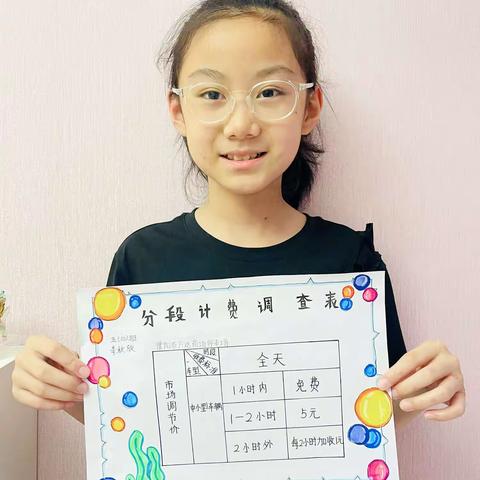 分段计费调查表
时段
收费标准
车型
全天
市场调节价
中小型车辆
1小时内
免费
1—2小时
5元
2小时外
每2小时加收1元